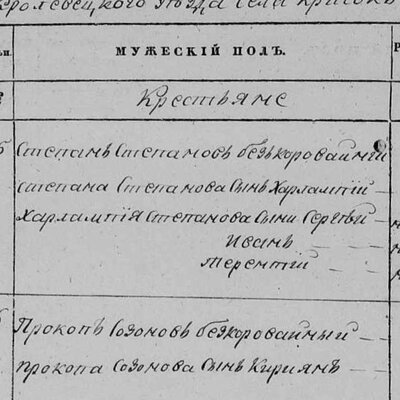 Кролевецкого уѣзда села
МУЖЕСКІЙ ПОЛЪ.
Крестьяне
Степанъ Степановъ безъкоровайний
степана Степанова Сынъ Харлампій
Харлампія Степанова Сыни Сергѣй
Иванъ
Терентій
Прокопъ Созоновъ безкоровайный
прокопа Созонова Сынъ Кириянъ